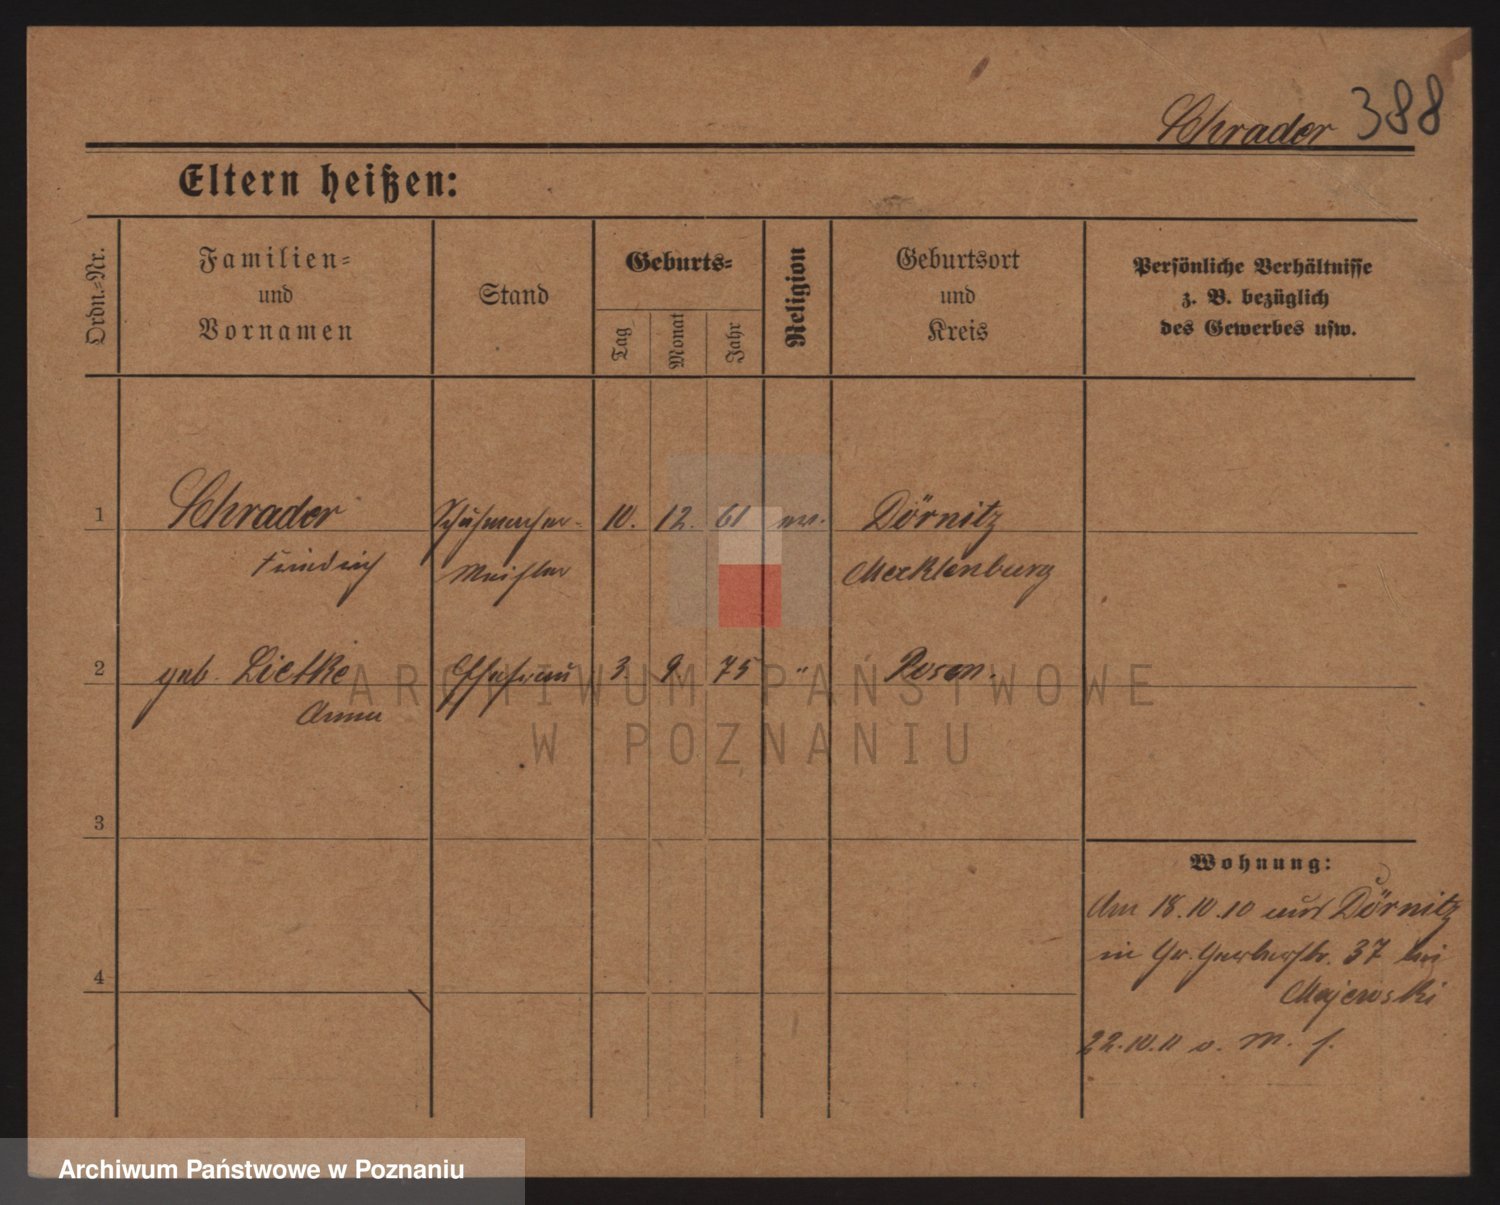 Schrader 388
Eltern heißen:
Ordn.-Nr.
Familien-
und
Vornamen
Stand
Geburts-
Tag
Monat
Jahr
Religion
Geburtsort
und
Kreis
Persönliche Verhältnisse
z. B. bezüglich
des Gewerbes usw.
1 Schrader Schuhmacher- 10. 12. 61 ev. Dörnitz
Friedrich Meister Mecklenburg
2 geb. Lietke Ehefrau 3. 9. 75 " Posen.
Anna
3
4
Wohnung:
Am 18.10.10 aus Dörnitz
in Gr. Gerberstr. 37 bei
Majewski
22.10.11 v. M. f.
ARCHIWUM PAŃSTWOWE
W POZNANIU
Archiwum Państwowe w Poznaniu